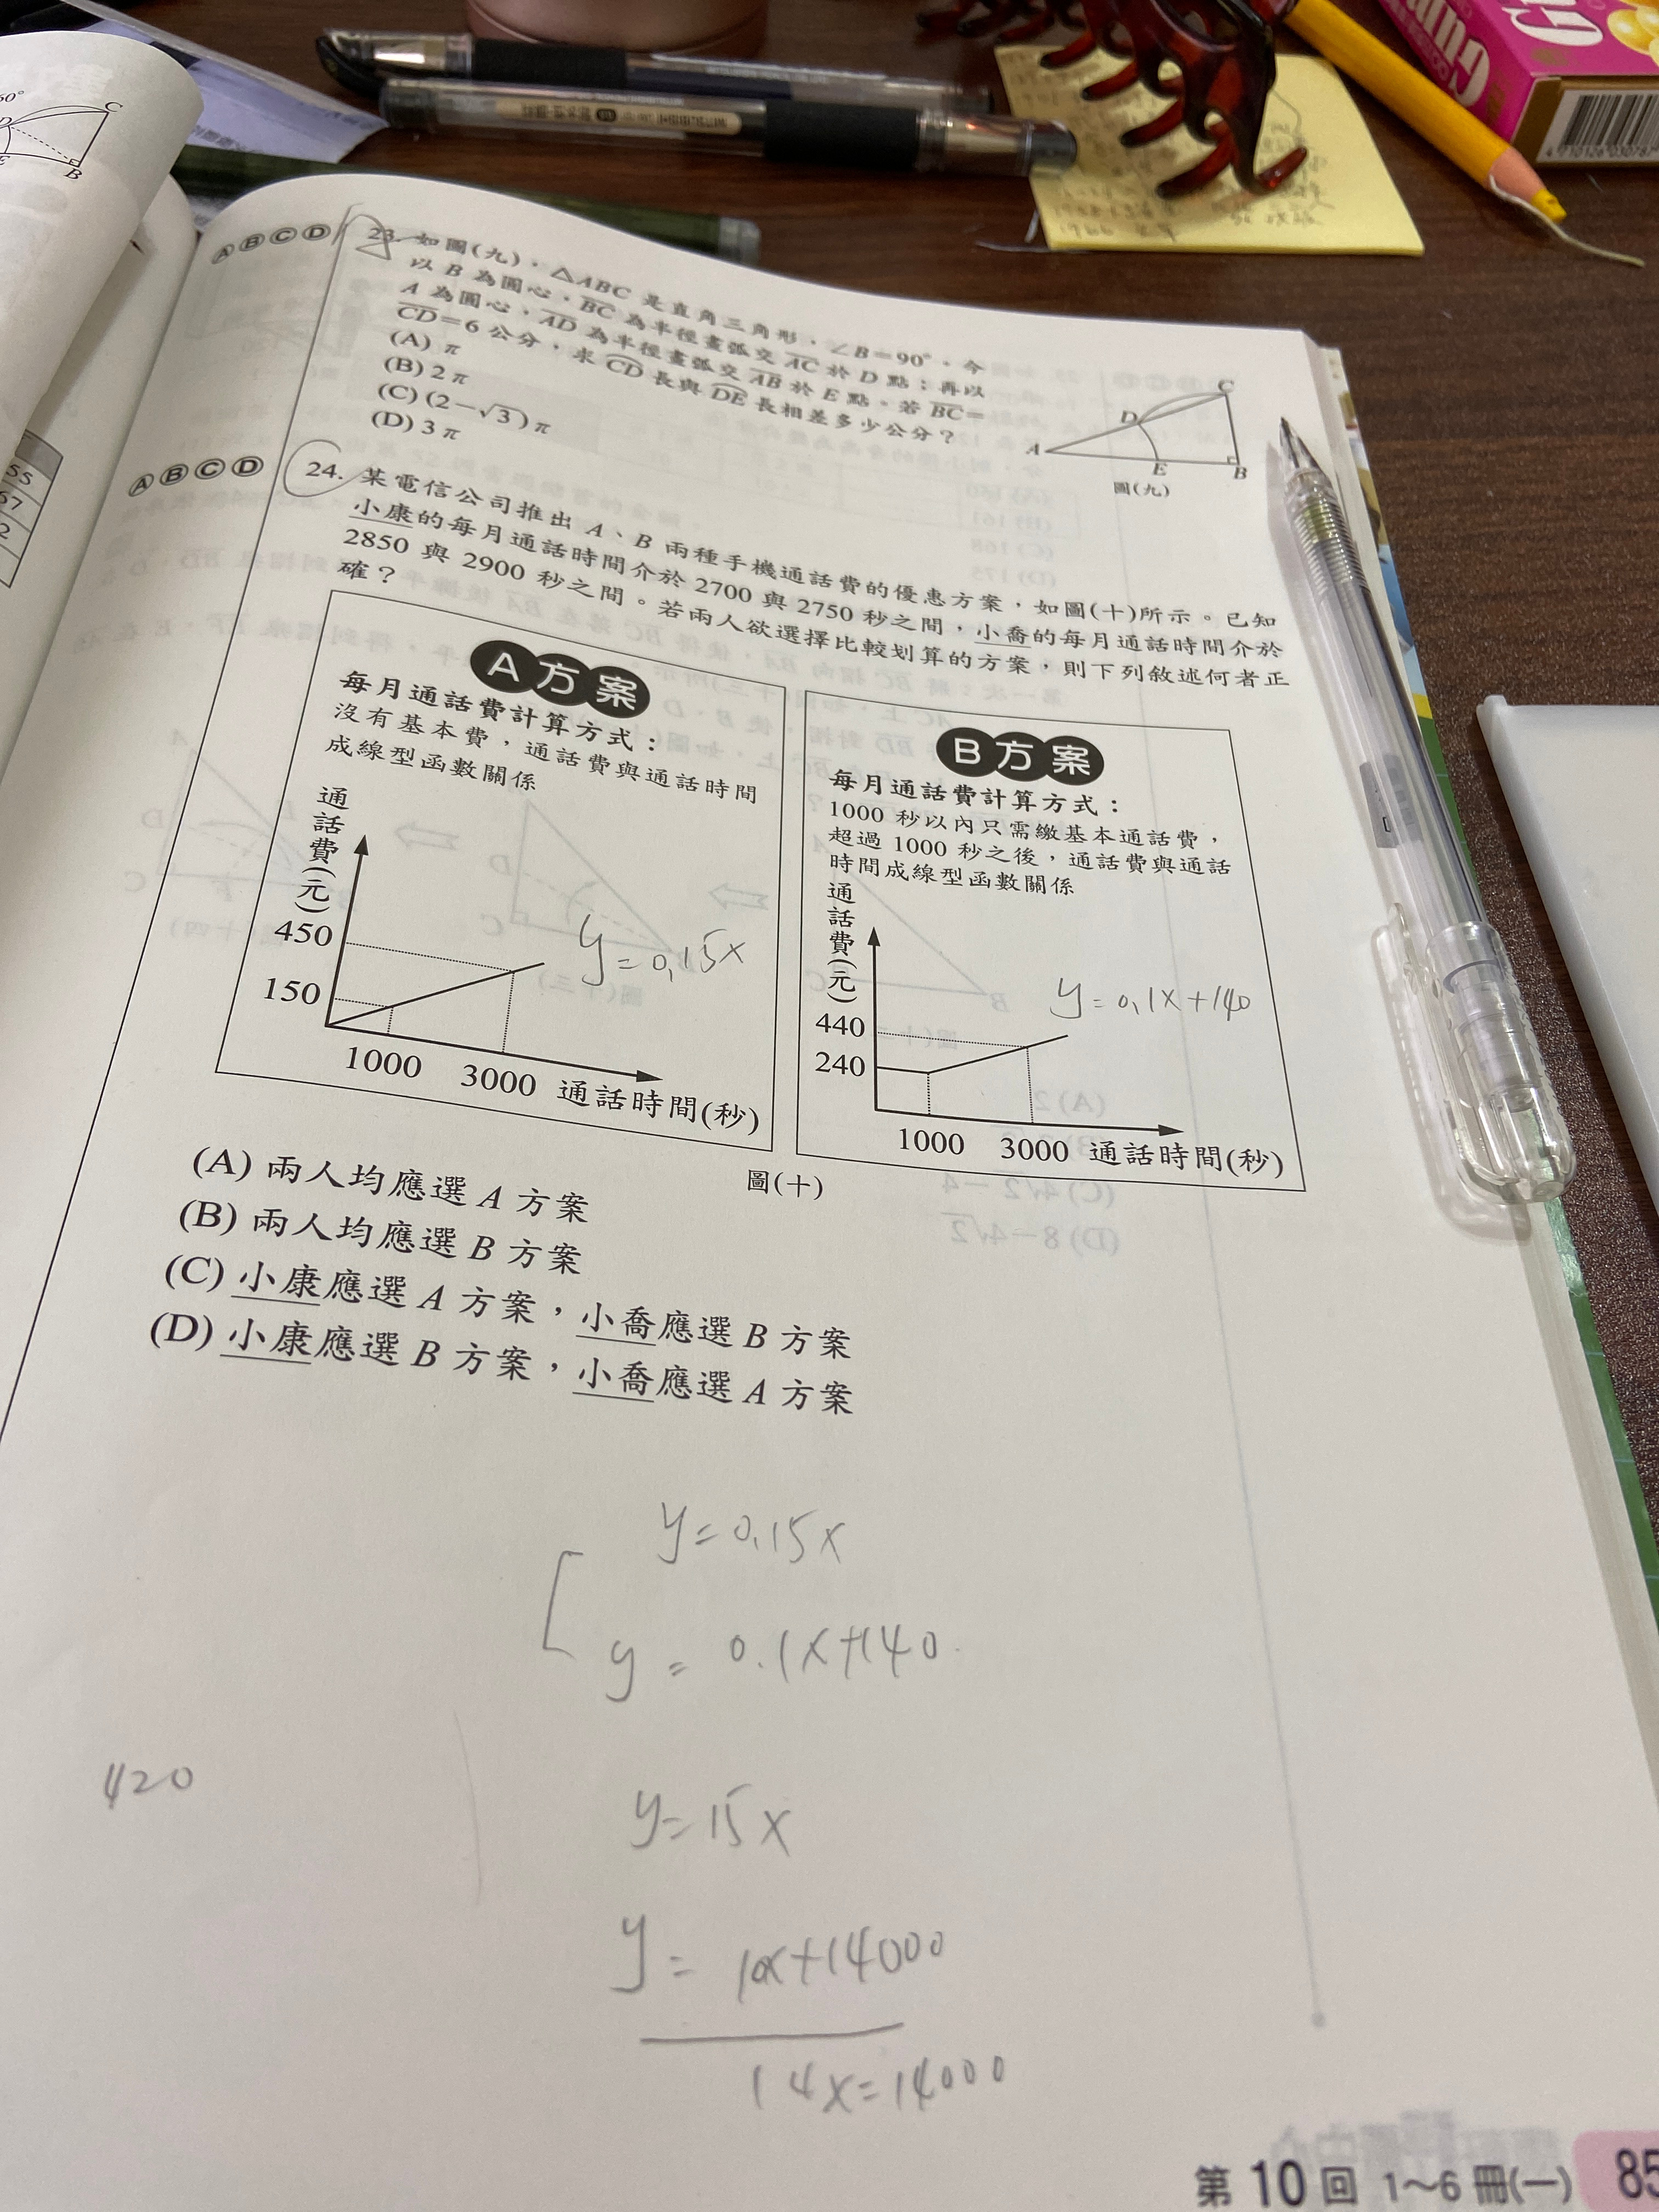 Ⓐ Ⓑ Ⓒ Ⓓ 23. 如圖(九),△ABC 是直角三角形,∠B=90°,今
以 B 為圓心,BC 為半徑畫弧交 AC 於 D 點;再以
A 為圓心,AD 為半徑畫弧交 AB 於 E 點。若 BC=
CD=6 公分,求 CD 長與 DE 長相差多少公分?
(A) π
(B) 2π
(C) (2-√3)π
(D) 3π
A
B
C
D
E
圖(九)
Ⓐ Ⓑ Ⓒ Ⓓ 24. 某電信公司推出 A、B 兩種手機通話費的優惠方案,如圖(十)所示。已知
小康的每月通話時間介於 2700 與 2750 秒之間,小喬的每月通話時間介於
2850 與 2900 秒之間。若兩人欲選擇比較划算的方案,則下列敘述何者正
確?
A方案
每月通話費計算方式:
沒有基本費,通話費與通話時間
成線型函數關係
通話費(元)
450
150
1000 3000 通話時間(秒)
y=0.15x
B方案
每月通話費計算方式:
1000 秒以內只需繳基本通話費,
超過 1000 秒之後,通話費與通話
時間成線型函數關係
通話費(元)
440
240
1000 3000 通話時間(秒)
y=0.1x+140
圖(十)
(A) 兩人均應選 A 方案
(B) 兩人均應選 B 方案
(C) 小康應選 A 方案,小喬應選 B 方案
(D) 小康應選 B 方案,小喬應選 A 方案
y=0.15x
y=0.1x+140
420
y=15x
y=10x+14000
14x=14000
第 10 回 1~6 冊(一) 85